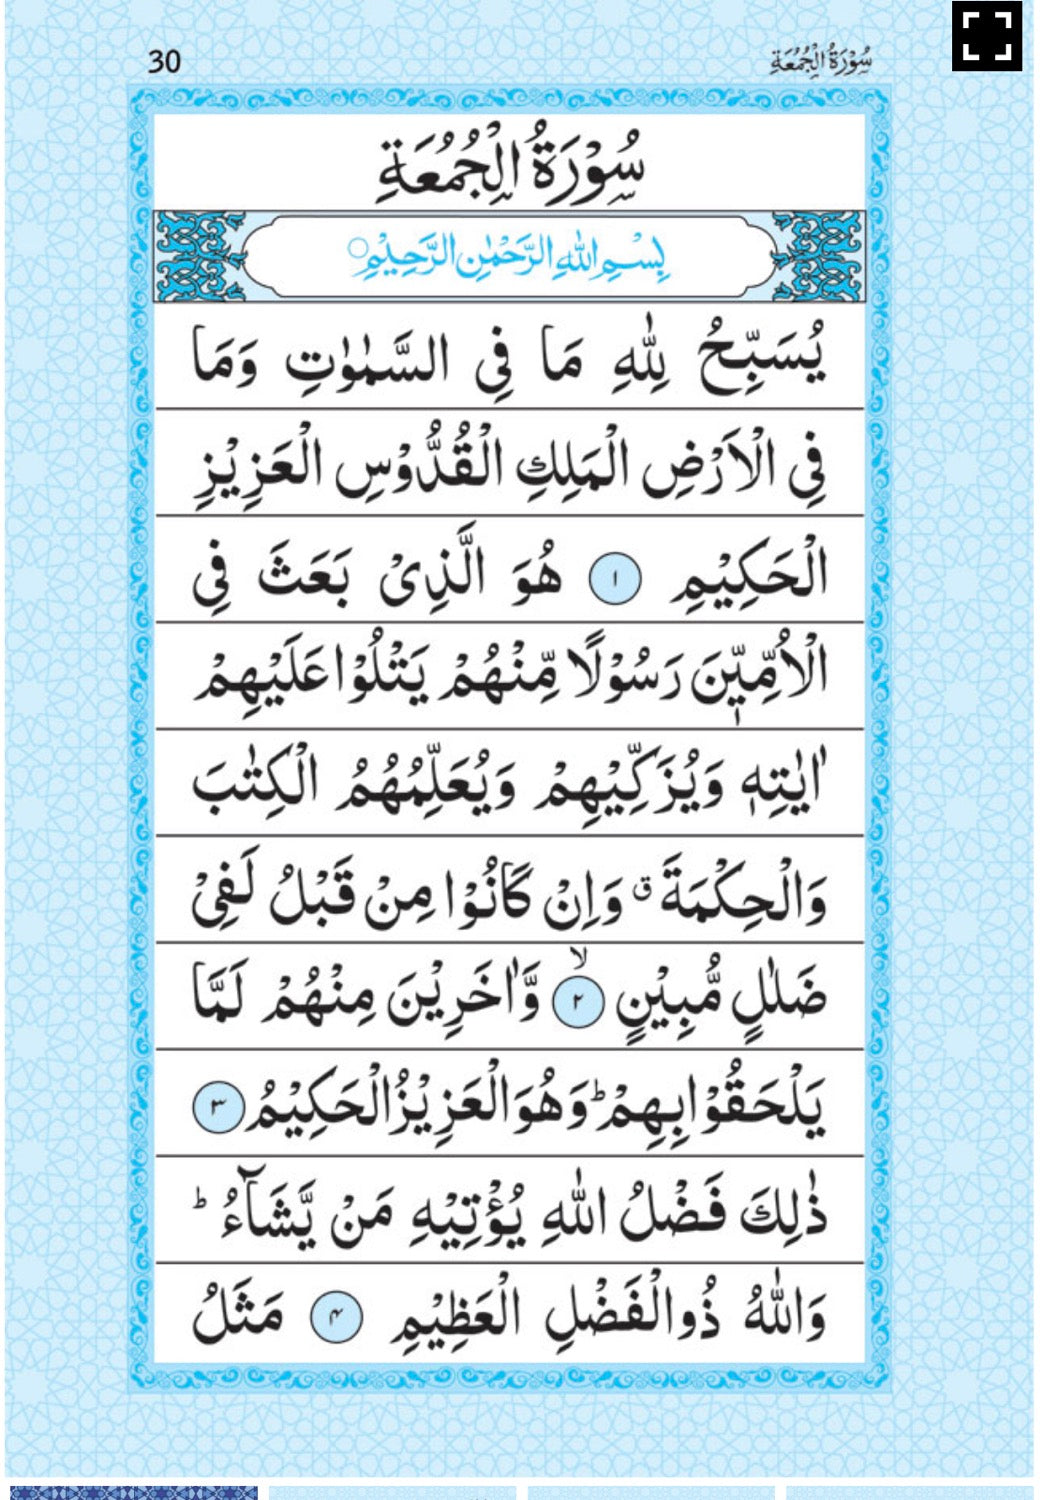 30
سُوْرَةُ الْجُمُعَةِ
سُوْرَةُ الْجُمُعَةِ
بِسْمِ اللّٰهِ الرَّحْمٰنِ الرَّحِيْمِ○
يُسَبِّحُ لِلّٰهِ مَا فِى السَّمٰوٰتِ وَمَا
فِى الْاَرْضِ الْمَلِكِ الْقُدُّوْسِ الْعَزِيْزِ
الْحَكِيْمِ ۱ هُوَ الَّذِىْ بَعَثَ فِى
الْاُمِّيّٖنَ رَسُوْلًا مِّنْهُمْ يَتْلُوْا عَلَيْهِمْ
اٰيٰتِهٖ وَيُزَكِّيْهِمْ وَيُعَلِّمُهُمُ الْكِتٰبَ
وَالْحِكْمَةَ ق وَاِنْ كَانُوْا مِنْ قَبْلُ لَفِىْ
ضَلٰلٍ مُّبِيْنٍ ۲ ۙ وَّاٰخَرِيْنَ مِنْهُمْ لَمَّا
يَلْحَقُوْا بِهِمْ ؕ وَهُوَ الْعَزِيْزُ الْحَكِيْمُ ۳
ذٰلِكَ فَضْلُ اللّٰهِ يُؤْتِيْهِ مَنْ يَّشَآءُ ؕ
وَاللّٰهُ ذُو الْفَضْلِ الْعَظِيْمِ ۴ مَثَلُ